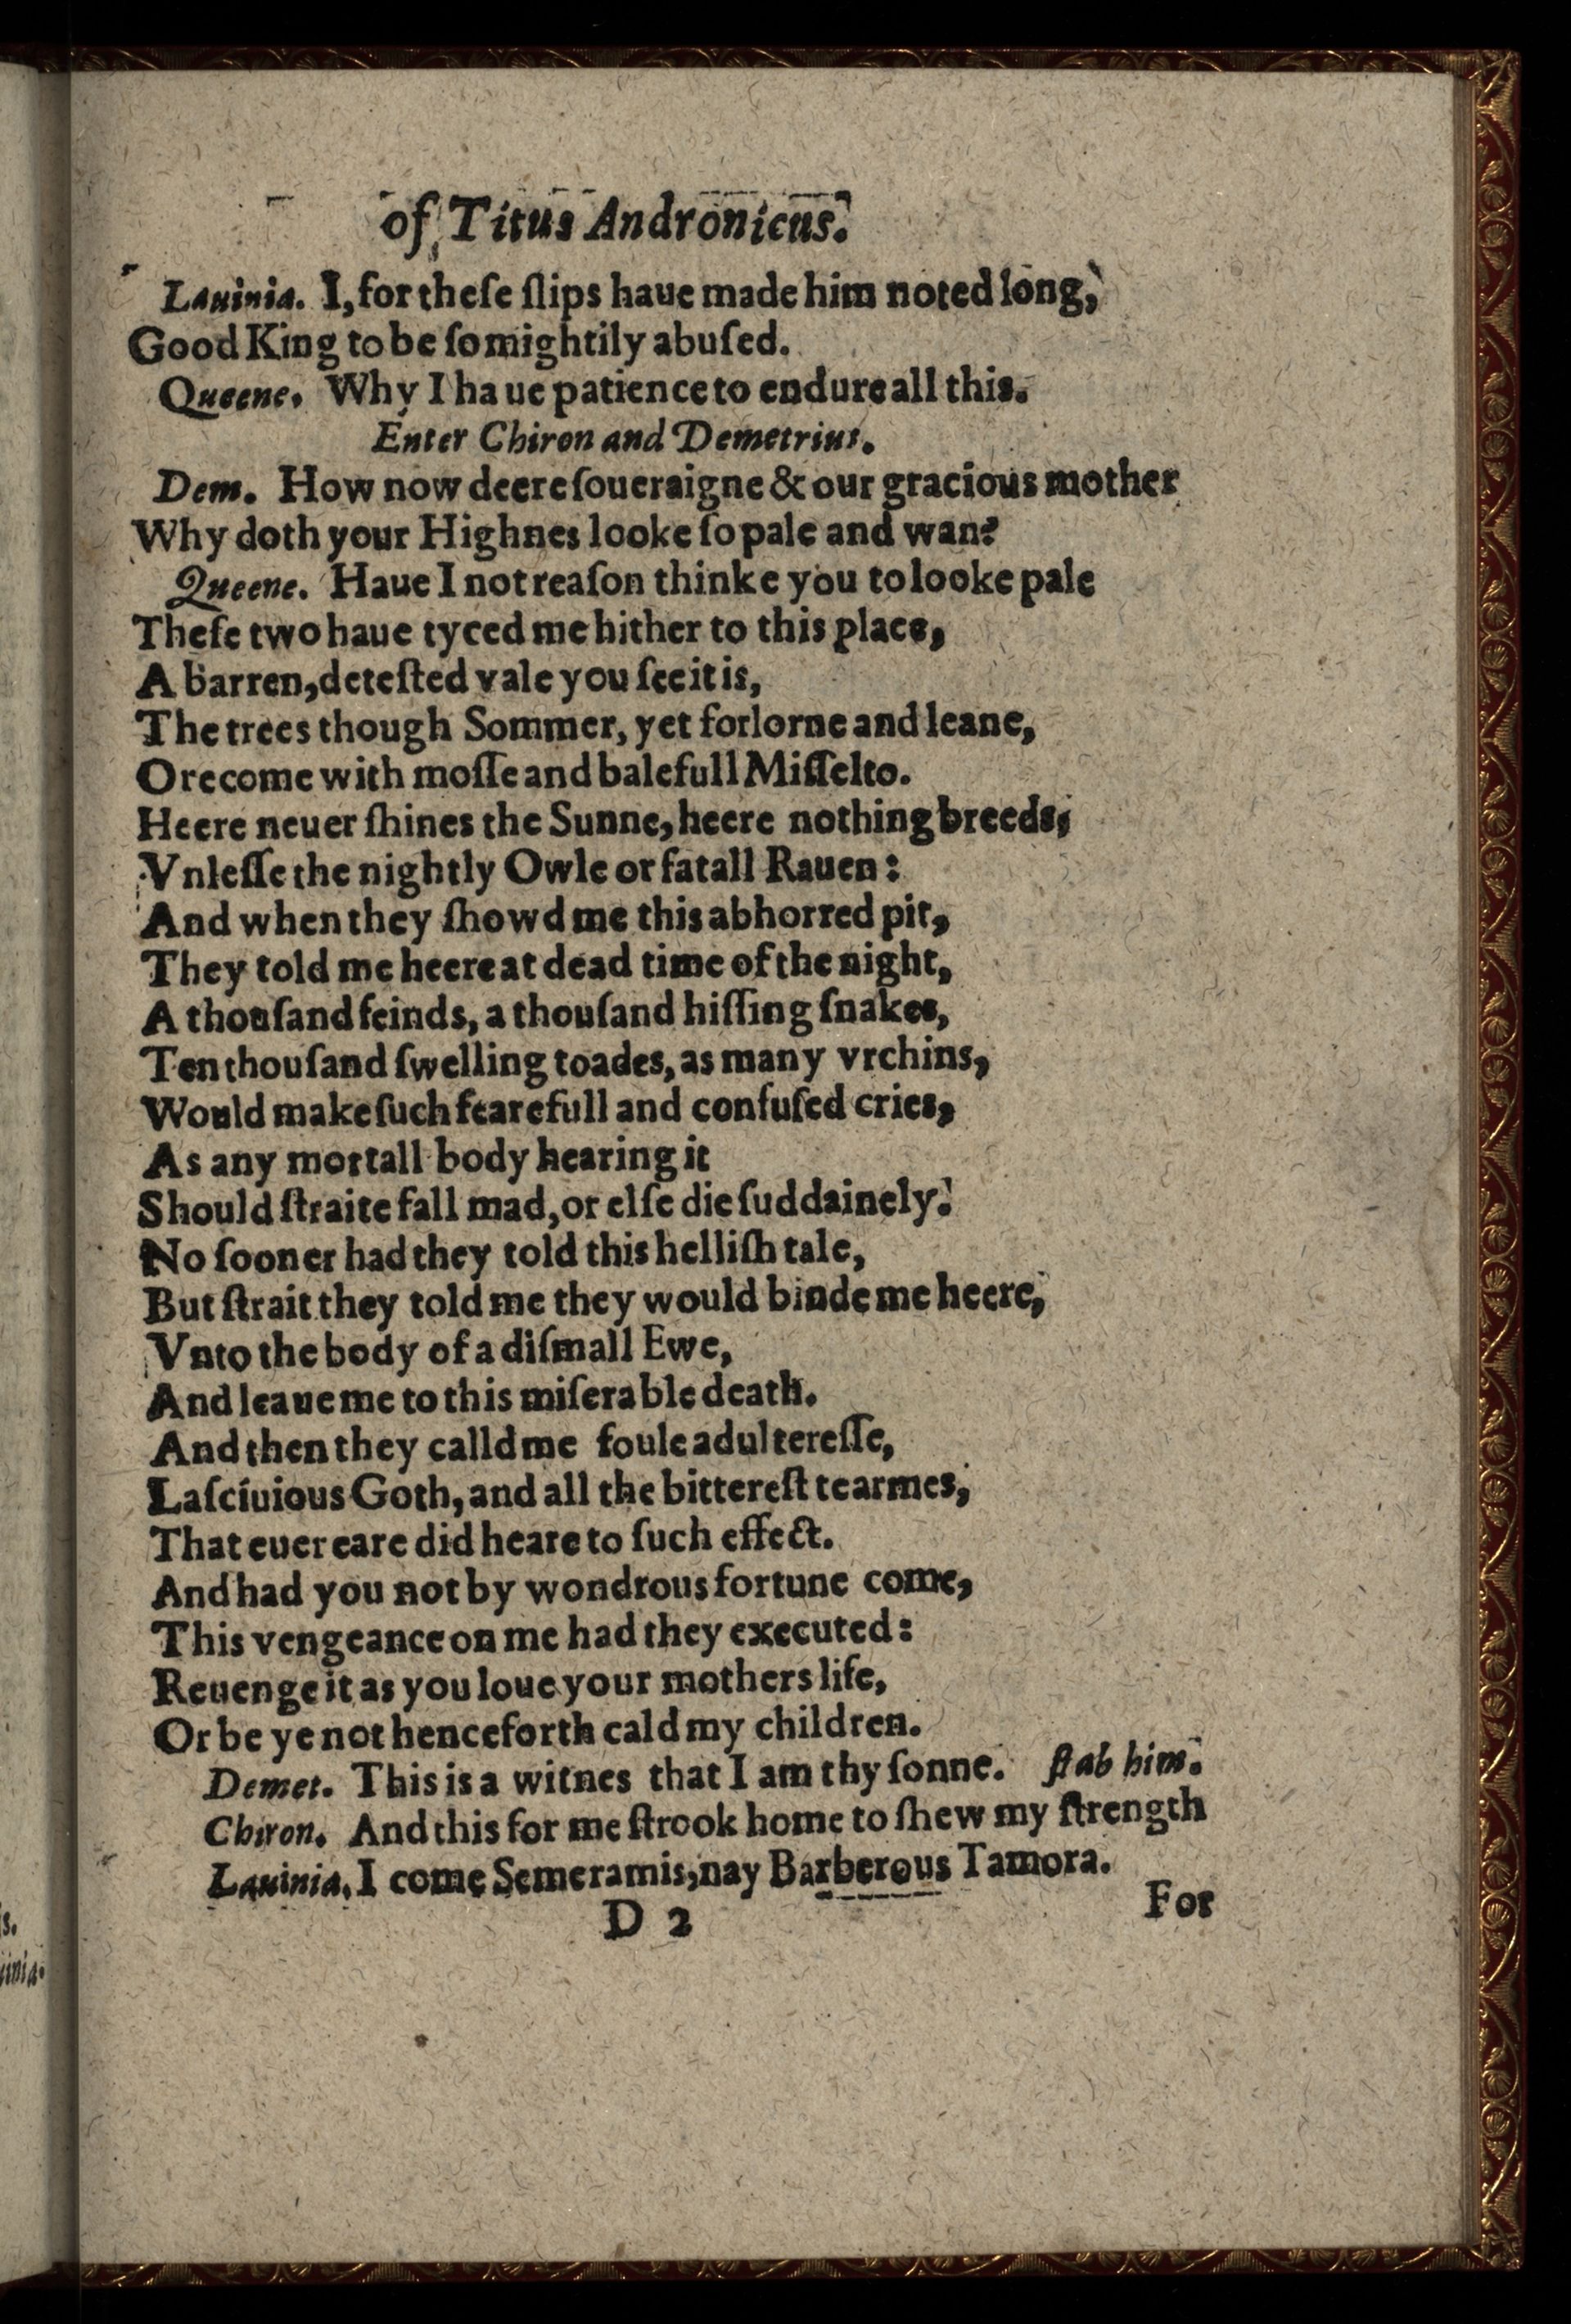 of Titus Andronicus.
Lauinia. I, for theſe ſlips haue made him noted long,
Good King to be ſo mightily abuſed.
Queene. Why I haue patience to endure all this.
Enter Chiron and Demetrius.
Dem. How now deere ſoueraigne & our gracious mother
Why doth your Highnes looke ſo pale and wan?
Queene. Haue I not reaſon thinke you to looke pale
Theſe two haue tyced me hither to this place,
A barren, deteſted vale you ſee it is,
The trees though Sommer, yet forlorne and leane,
Orecome with moſſe and balefull Miſſelto.
Heere neuer ſhines the Sunne, heere nothing breeds,
Vnleſſe the nightly Owle or fatall Rauen:
And when they ſhowd me this abhorred pit,
They told me heere at dead time of the night,
A thouſand feinds, a thouſand hiſſing ſnakes,
Ten thouſand ſwelling toades, as many vrchins,
Would make ſuch fearefull and confuſed cries,
As any mortall body hearing it
Should ſtraite fall mad, or elſe die ſuddainely.
No ſooner had they told this helliſh tale,
But ſtrait they told me they would binde me heere,
Vnto the body of a diſmall Ewe,
And leaue me to this miſerable death.
And then they calld me foule adultereſſe,
Laſciuious Goth, and all the bittereſt tearmes,
That euer eare did heare to ſuch effect.
And had you not by wondrous fortune come,
This vengeance on me had they executed:
Reuenge it as you loue your mothers life,
Or be ye not henceforth cald my children.
Demet. This is a witnes that I am thy ſonne. ſtab him.
Chiron. And this for me ſtrook home to ſhew my ſtrength
Lauinia. I come Semeramis, nay Barberous Tamora.
D 2 For
s.
uinia.